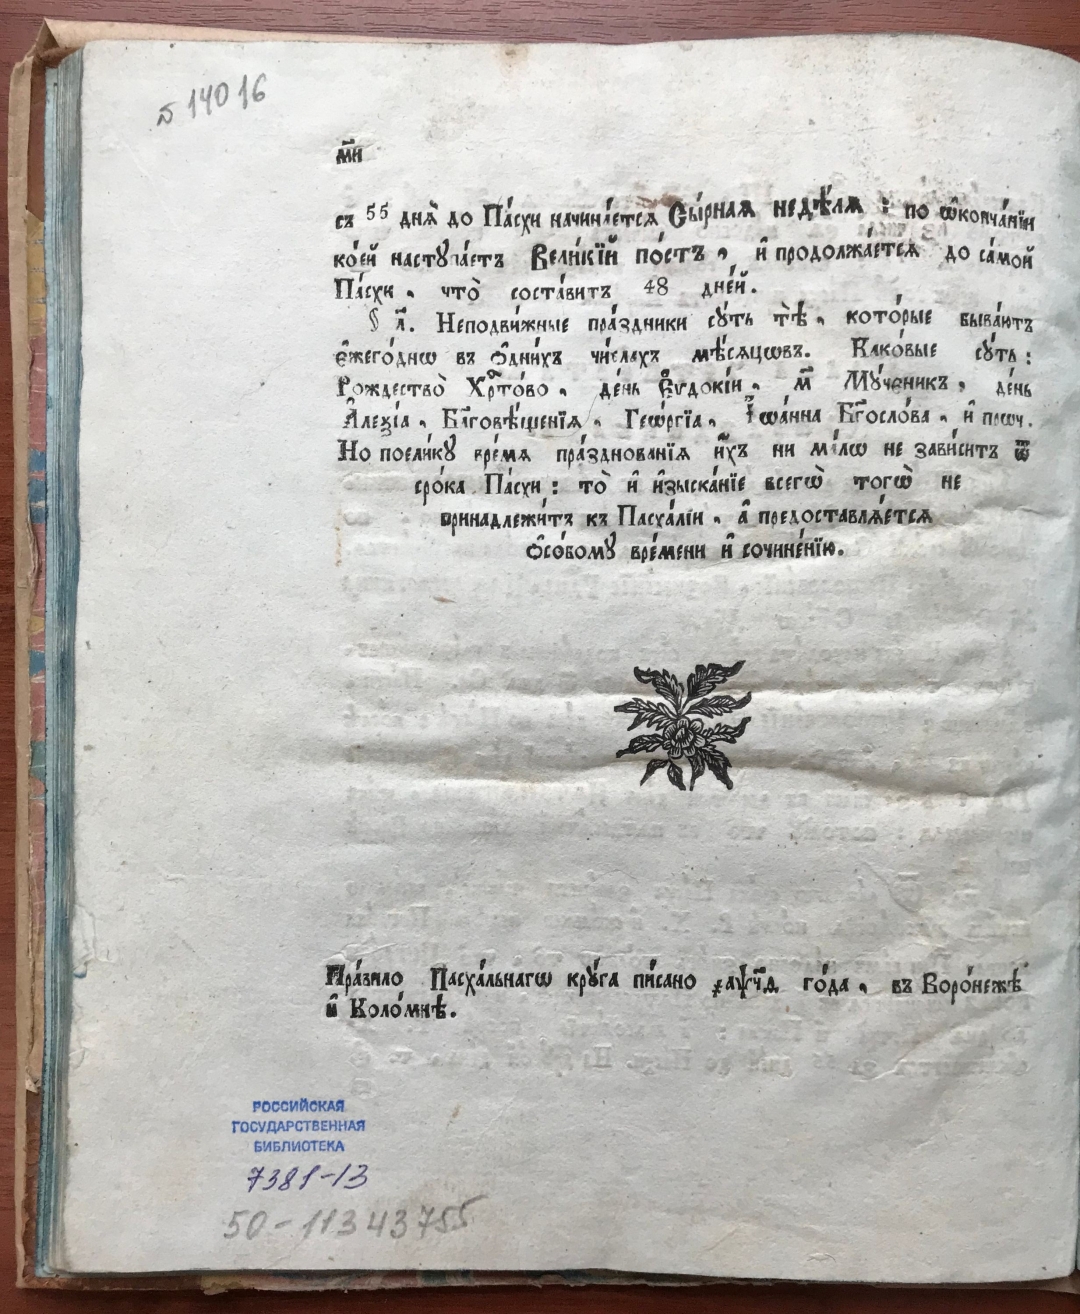 Б 14016
м҃и
съ 55 днѧ̀ до Па́схи начина́етсѧ Сы́рнаѧ недѣ́лѧ : по ѡ҆конча́нїи
ко́ей настꙋпа́етъ Вели́кїй по́стъ , и҆ продолжа́етсѧ до са́мой
Па́схи , что̀ соста́витъ 48 дне́й.
§ л҃. Неподви́жные пра́здники сꙋ́ть тѣ̀ , кото́рые быва́ютъ
є҆жего́днѡ въ ѻ҆дни́хъ чи́слахъ мѣ́сѧцѡвъ. Каковы́е сꙋ́ть :
Рождество̀ Хрⷭ҇то́во , де́нь Є҆ѵдокі́и , м҃ Мꙋ́ченикъ , де́нь
А҆леѯі́а , Бл҃говѣ́щенїѧ , Гео́ргїа , І҆ѡа́нна Бг҃осло́ва , и҆ про́ч.
Но поели́кꙋ вре́мѧ пра́зднованїѧ и҆́хъ ни ма́лѡ не зави́ситъ ѿ
сро́ка Па́схи : то̀ и҆ и҆зыска́нїе всегѡ̀ тогѡ̀ не
принадлежи́тъ къ Пасха́лїи , а҆ предоставлѧ́етсѧ
ѻ҆со́бомꙋ вре́мени и҆ сочине́нїю.
Пра́вило Пасха́льнагѡ крꙋ́га пи́сано ҂аѱч҃ѧ го́да , въ Воро́нежѣ
и҆ Коло́мнѣ.
РОССИЙСКАЯ
ГОСУДАРСТВЕННАЯ
БИБЛИОТЕКА
7381-13
50-11343755